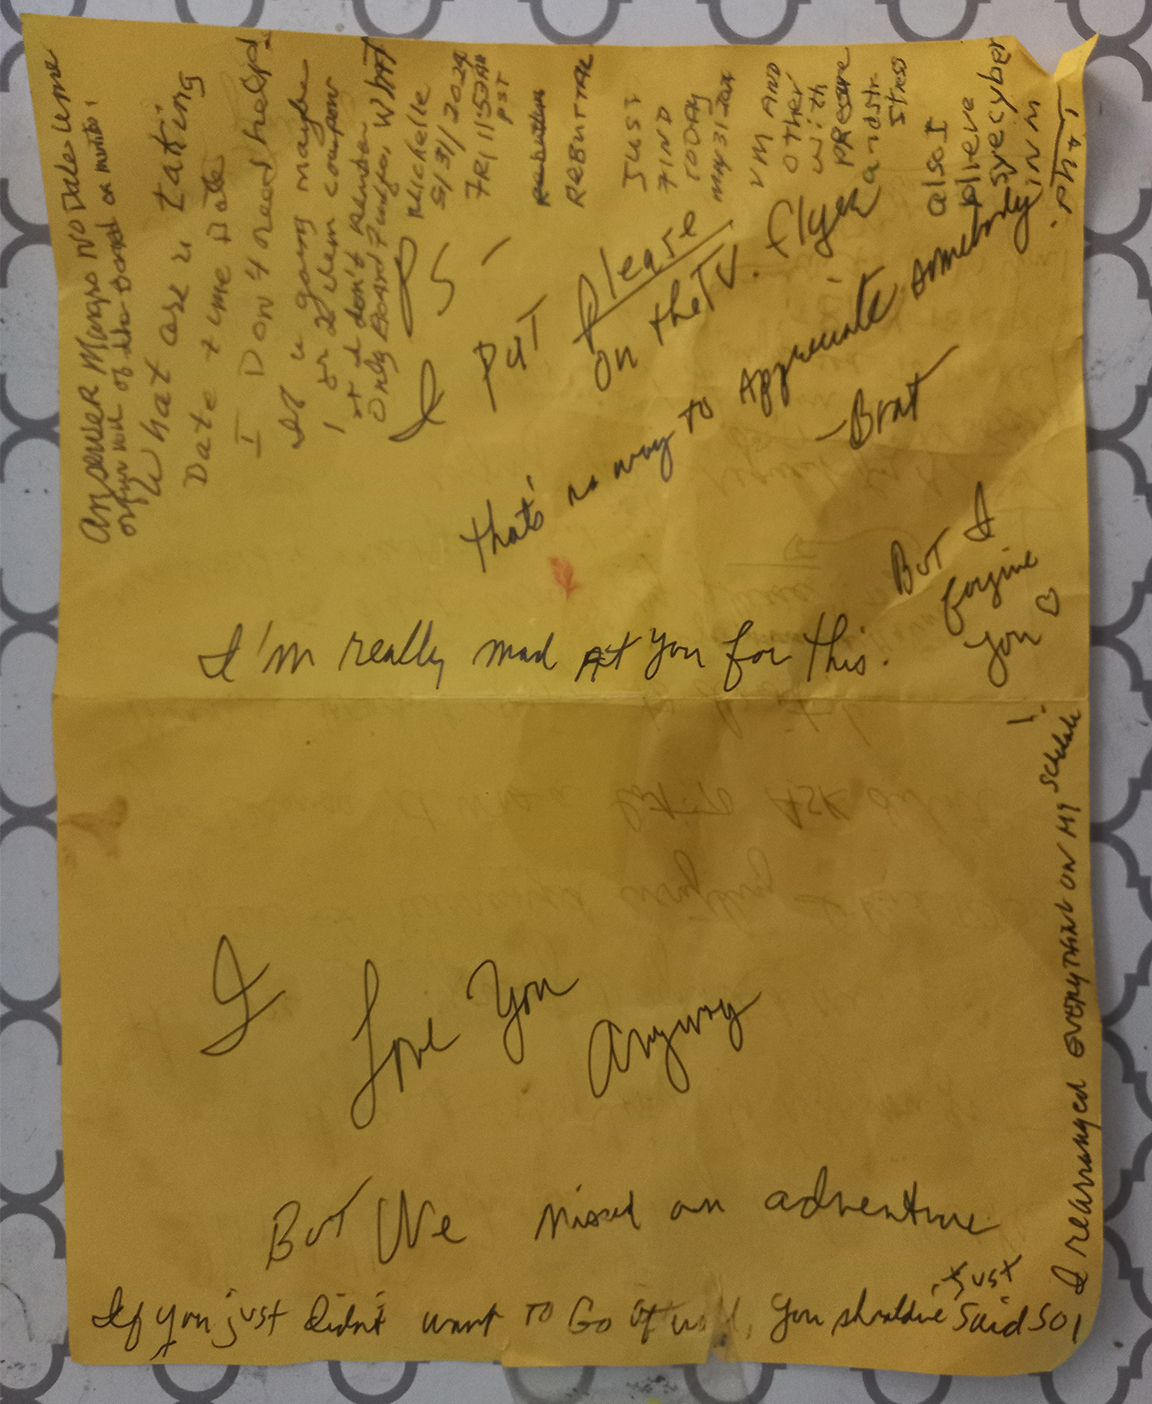 Answer Mungo No Date time
What are u taking
Date time Date
I Don't need help
If u going maybe
1 or 2 them coupon
Only Board Fungo, What
Michelle
5/31/2024
FRI 11:52AM
PST
REBUTTAL
JUST
FIND
TODAY
MAY 31 2024
VM AND
other
with
PRESURE
andstr
stress
also I
blieve
INN
I PUT Please
on the TV. flyer
that's no way to Appreciate somebody
-Brat
I'm really mad At you for this.
BUT I
forgive
you ♡
I Love You
Anyway
BUT We missed an adventure
If you just didn't want TO Go at all, you shoulda just said so!
I rearranged everything on my schedule!